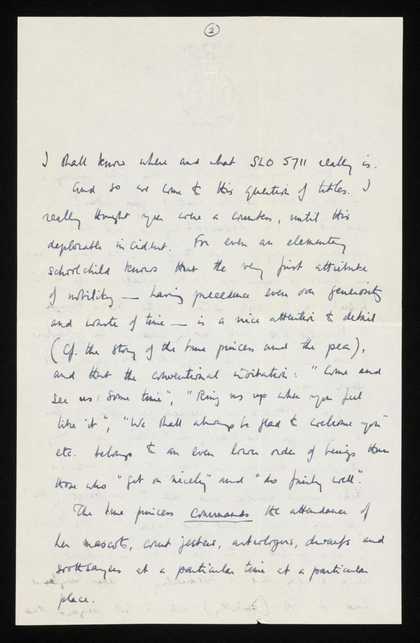 2
I shall know where and what SLO 5711 really is.
And so we come to this question of titles. I
really thought you were a countess, until this
deplorable incident. For even an elementary
schoolchild knows that the very first attribute
of nobility — having precedence even over generosity
and waste of time — is a nice attention to detail
(Cf. the story of the true princess and the pea),
and that the conventional invitation: "Come and
see us some time", "Ring us up when you feel
like it", "We shall always be glad to welcome you"
etc. belongs to an even lower order of beings than
those who "get on nicely" and "do fairly well".
The true princess commands the attendance of
her mascots, court jesters, astrologers, dwarfs and
soothsayers at a particular time at a particular
place.